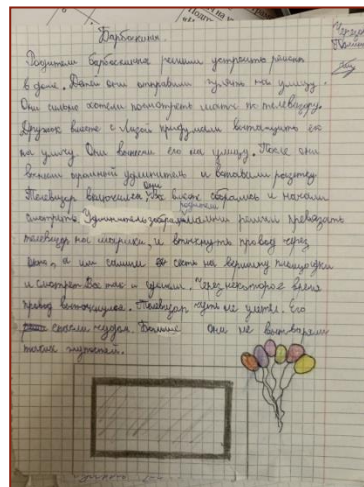 Барбоскины.
Родители барбоскины решили устроить ремонт
в доме. Детей они отправили гулять на улицу.
Они сильно хотели посмотреть матч по телевизору.
Дружок вместе с Лизой придумали вытащить его
на улицу Они вынесли его на улицу. После они
огромной удлинитель и вставили розетку
Телевизор включился. Все они собрались и начали
смотреть. Удлинитель забрали родители решили привязать
телевизор на шарики, и воткнуть провод через
а им самим сесть на вершину площадки
и смотреть Все так и сделали. Через некоторое время
провод выткнулся. Телевизор чуть не улетел. Его
спасло чудом. Больше они не вытворяли
таких глупостей.